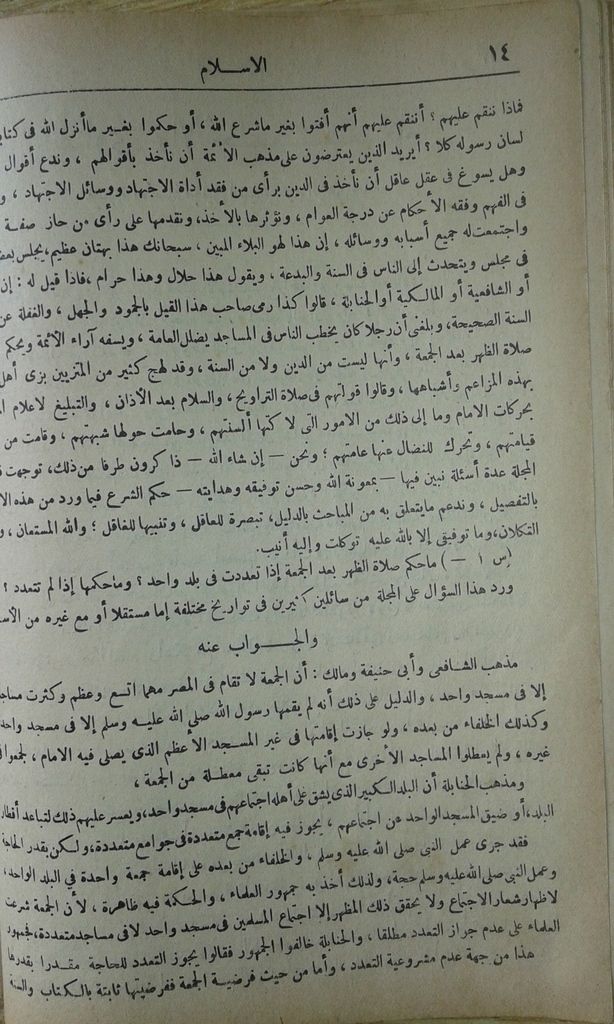 ١٤
الاســـلام
فماذا ننقم عليهم ؟ أننقم عليهم أنهم أفتوا بغير ماشرع الله ، أو حكموا بغــير ماأنزل الله فى
لسان رسوله كلا ؟ أيريد الذين يعترضون على مذهب الأئمة أن نأخذ بأقوالهم ، وندع أقوال
وهل يسوغ فى عقل عاقل أن نأخذ فى الدين برأى من فقد أداة الاجتهاد ووسائل الاجتهاد ،
فى الفهم وفقه الأحكام عن درجة العوام ، ونؤثرها بالأخذ، ونقدمها على رأى من حاز صفــة
واجتمعت له جميع أسبابه ووسائله ، إن هذا لهو البلاء المبين ، سبحانك هذا بهتان عظيم،يجلس
فى مجلس ويتحدث إلى الناس فى السنة والبدعة ، ويقول هذا حلال وهذا حرام ،فاذا قيل له : إن
أو الشافعية أو المالــكية أو الحنابلة ، قالوا كذا رمى صاحب هذا القيل بالجمود والجهل ، والغفلة عن
السنة الصحيحة، وبلغنى أن رجلا كان يخطب الناس فى المساجد يضلل العامة ، ويسفه آراء الأئمة ويحكم
صلاة الظهر بعد الجمعة ، وأنها ليست من الدين ولا من السنة ، وقد لهج كثير من المتزيين بزى أهل
بهذه المزاعم وأشباهها ، وقالوا قولتهم فى صلاة التراويح ، والسلام بعد الأذان ، والتبليغ لاعلام
بحركات الامام وما إلى ذلك من الامور التى لا كتها ألسنتهم ، وحامت حولها شبهتهم ، وقامت من
قيامتهم ، وتحرك للنضال عنها عامتهم ؛ ونحن — إن شاء الله — ذا كرون طرفا من ذلك، توجهت
المجلة عدة أسئلة نبين فيها — بمعونة الله وحسن توفيقه وهدايته — حكم الشرع فيما ورد من هذه
بالتفصيل ، وندعم مايتعلق به من المباحث بالدليل، تبصرة للعاقل ، وتنبيها للغافل ؛ والله المستعان ،
التكلان، وما توفيقى إلا بالله عليه توكلت وإليه أنيب.
(س ١ — ) ماحكم صلاة الظهر بعد الجمعة إذا تعددت فى بلد واحد ؟ وماحكمها إذا لم تتعدد ؟
ورد هذا السؤال على المجلة من سائلين كثيرين فى تواريخ مختلفة إما مستقلا أو مع غيره من
والجــــواب عنه
مذهب الشــافعى وأبى حنيفة ومالك : أن الجمعة لا تقام فى المصر مهما اتــع وعظم وكثرت
إلا فى مسجد واحد ، والدليل على ذلك أنه لم يقمها رسول الله صلى الله عليــه وسلم إلا فى مسجد واحد
وكذلك الخلفاء من بعده ، ولو جازت إقامتها فى غير المســجد الأعظم الذى يصلى فيه الامام ، لجمعوا
غيره ، ولم يعطلوا المساجد الأخرى مع أنها كانت تبقى معطــلة من الجمعة ،
ومذهب الحنابلة أن البلد الــكبير الذى يشق على أهله اجتماعهم فى مسجد واحد،ويعسر عليهم ذلك لتباعد أقطار
البلد،أو ضيق المسجد الواحد عن اجتماعهم ، يجوز فيه إقامة جمع متعددة فى جوامع متعددة، ولــكن بقدر الحاجة
فقد جرى عمل النبى صلى الله عليه وسلم ، والخلفاء من بعده على إقامة جمعة واحدة فى البلد الواحد،
وعمل النبى صلى الله عليه وسلم حجة، ولذلك أخذ به جمهور العلماء ، والحــكمة فيه ظاهرة ، لأن الجمعة شرعت
لاظهار شعار الاجتماع ولا يحقق ذلك المظهر إلا اجتماع المسلمين فى مسجد واحد لا فى مساجد متعددة،
العلماء على عدم جراز التعدد مطلقا ، والحنابلة خالفوا الجمهور فقالوا يجوز التعدد للحاجة مقــدرا بقدرها
هذا من جهة عدم مشروعية التعدد ، وأما من حيث فرضيــة الجمعة ففرضيتها ثابتة بالــكتاب والسنة